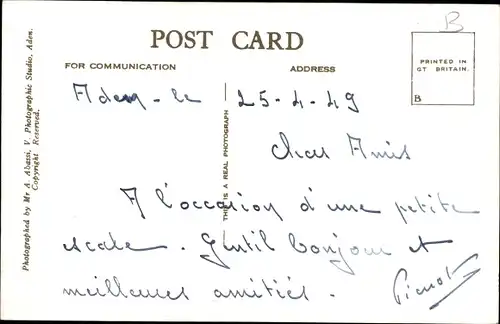 B
POST CARD
FOR COMMUNICATION
ADDRESS
PRINTED IN
GT BRITAIN.
B
Photographed by Mr A Abassi, V. Photographic Studio, Aden.
Copyright Reserved.
THIS IS A REAL PHOTOGRAPH
Aden - le 25-4-49
Chers Amis
A l'occasion d'une petite
escale. Gentil bonjour et
meilleures amitiés.
Pierrot